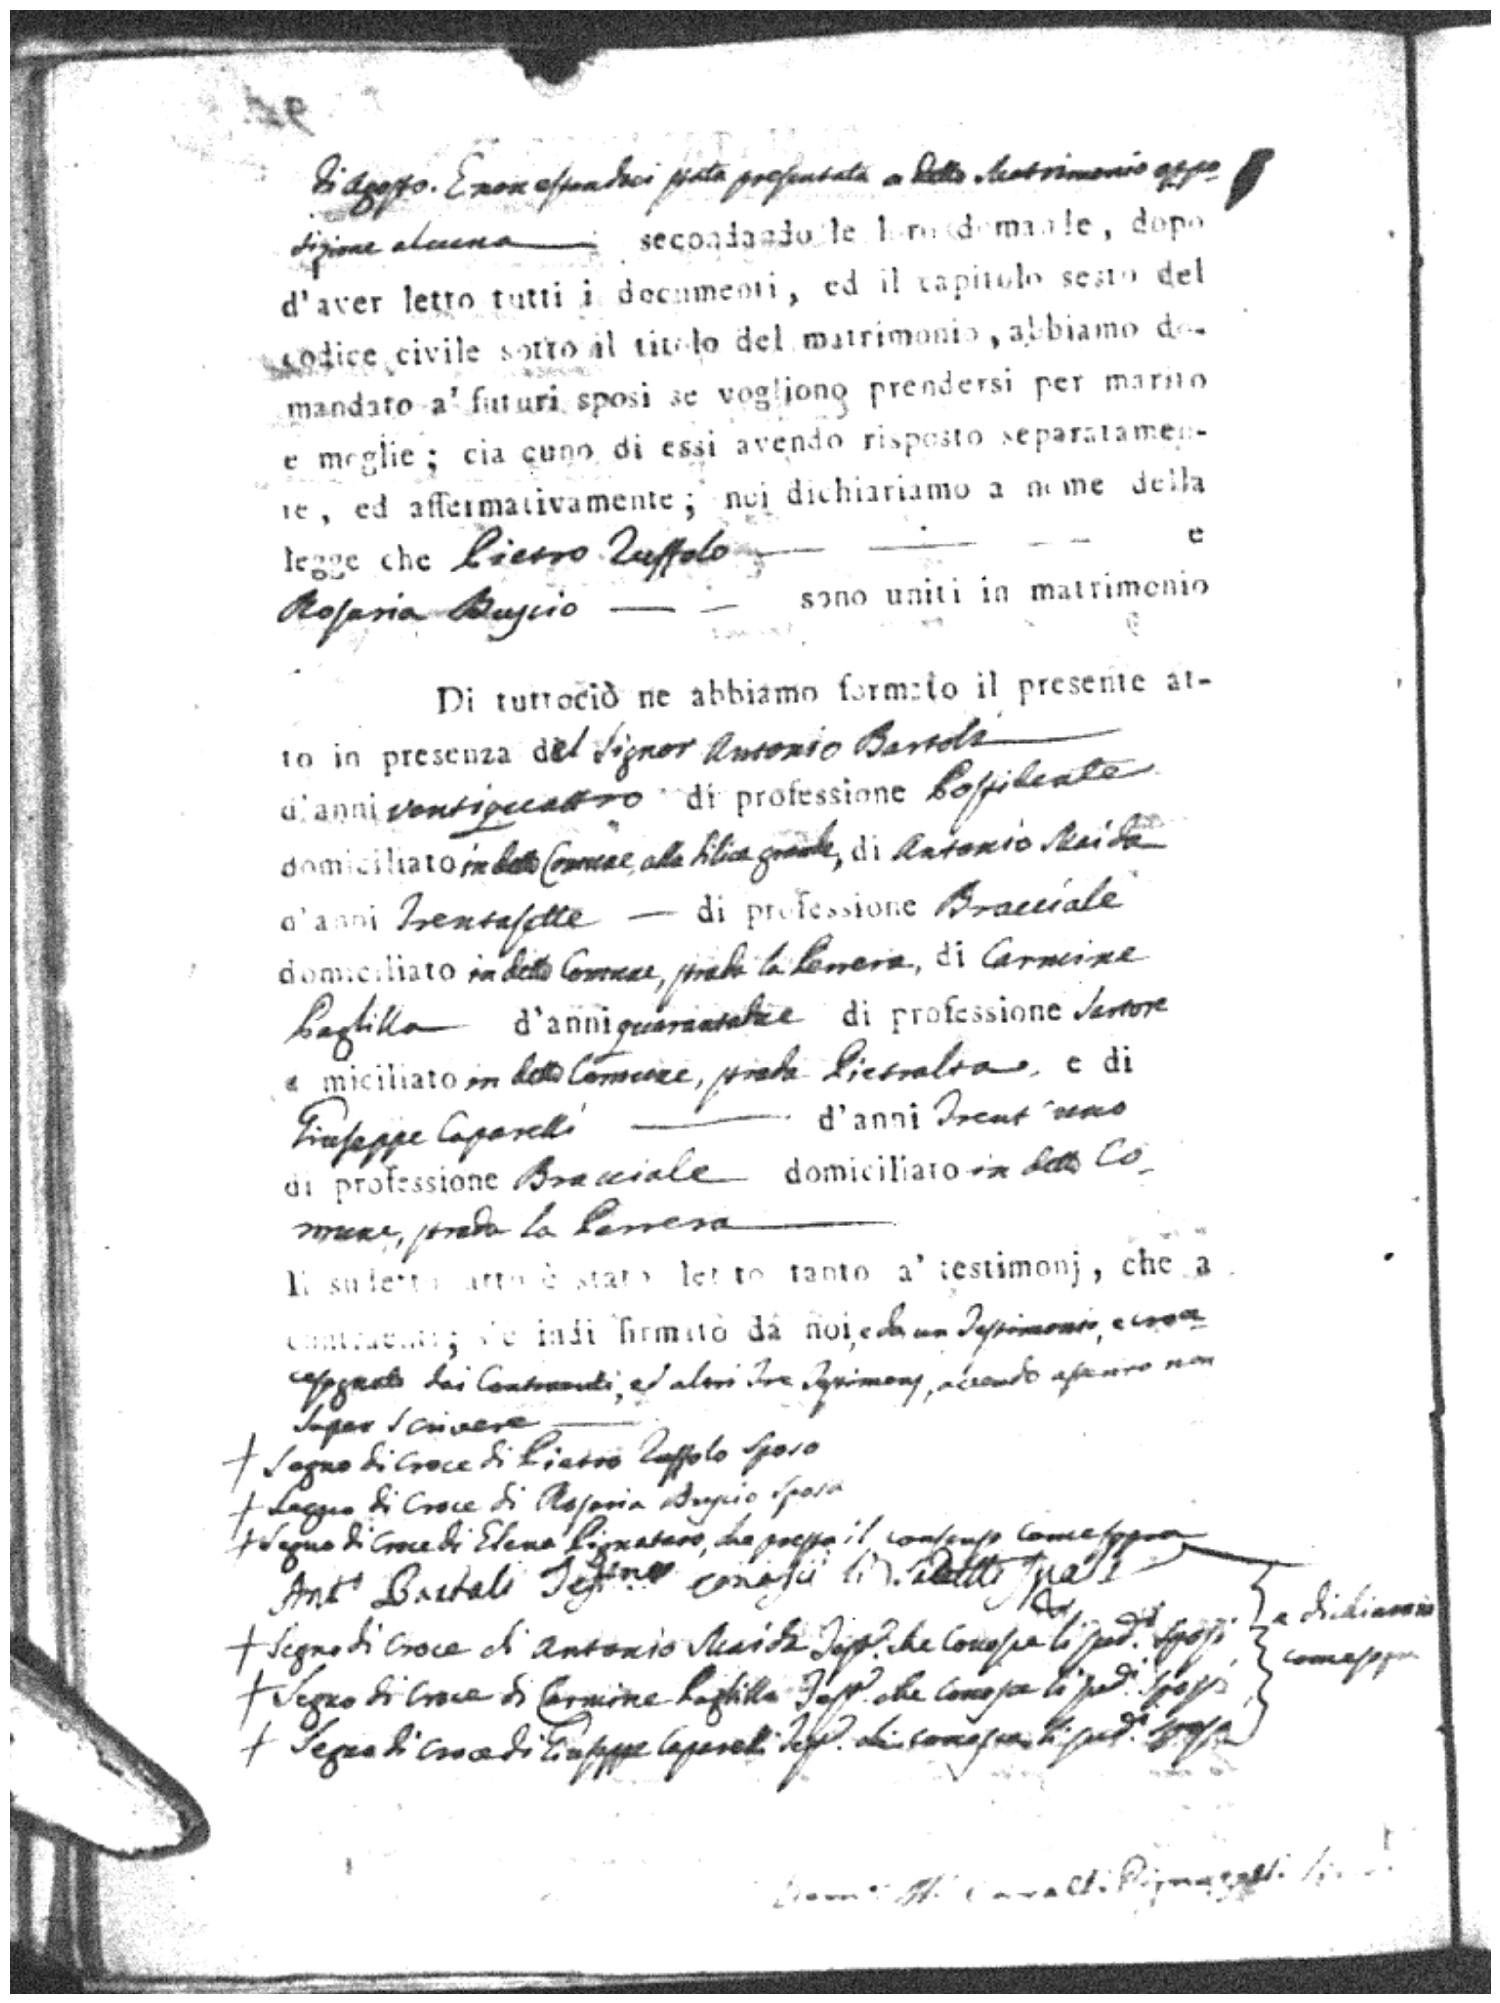 di Agosto. E non essendoci stata presentata a detto Matrimonio oppo-
sizione alcuna secondando le loro domande, dopo
d'aver letto tutti i documenti, ed il capitolo sesto del
codice civile sotto il titolo del matrimonio, abbiamo do-
mandato a' futuri sposi se vogliono prendersi per marito
e moglie; ciascuno di essi avendo risposto separatamen-
te, ed affermativamente; noi dichiariamo a nome della
legge che Pietro Zuffolo — — — e
Rosaria Buscio — — sono uniti in matrimonio
Di tuttociò ne abbiamo formato il presente at-
to in presenza del Signor Antonio Bartoli
d'anni ventiquattro di professione Possidente
domiciliato in detto Comune, alla Silica grande, di Antonio Maida
d'anni Trentasette — di professione Bracciale
domiciliato in detto Comune, strada la Perrera, di Carmine
Paglilla d'anni quarantadue di professione Sartore
miciliato in detto Comune, strada Pietralta, e di
Giuseppe Caparelli — d'anni Trent'uno
di professione Bracciale domiciliato in detto Co-
mune, strada la Perrera
Il sudetto atto è stato letto tanto a' testimonj, che a
contraenti; e indi firmato da noi, e da un Testimonio, e croce
segnato dai Contraenti, ed altri Tre Testimonj, avendo asserito non
saper scrivere
+ Segno di croce di Pietro Zuffolo sposo
+ Segno di Croce di Rosaria Buscio sposa
+ Segno di Croce di Elena Pignataro, che presta il consenso come sopra
Ant.o Bartoli Testim.o conosco li sudetti sposi
+ Segno di Croce di Antonio Maida Test.o che conosce li sud.i sposi
+ Segno di Croce di Carmine Paglilla Test.o che conosce li sud.i sposi
+ Segno di Croce di Giuseppe Caparelli Test.o che conosce li sud.i sposi
e dichiarò
come sopra